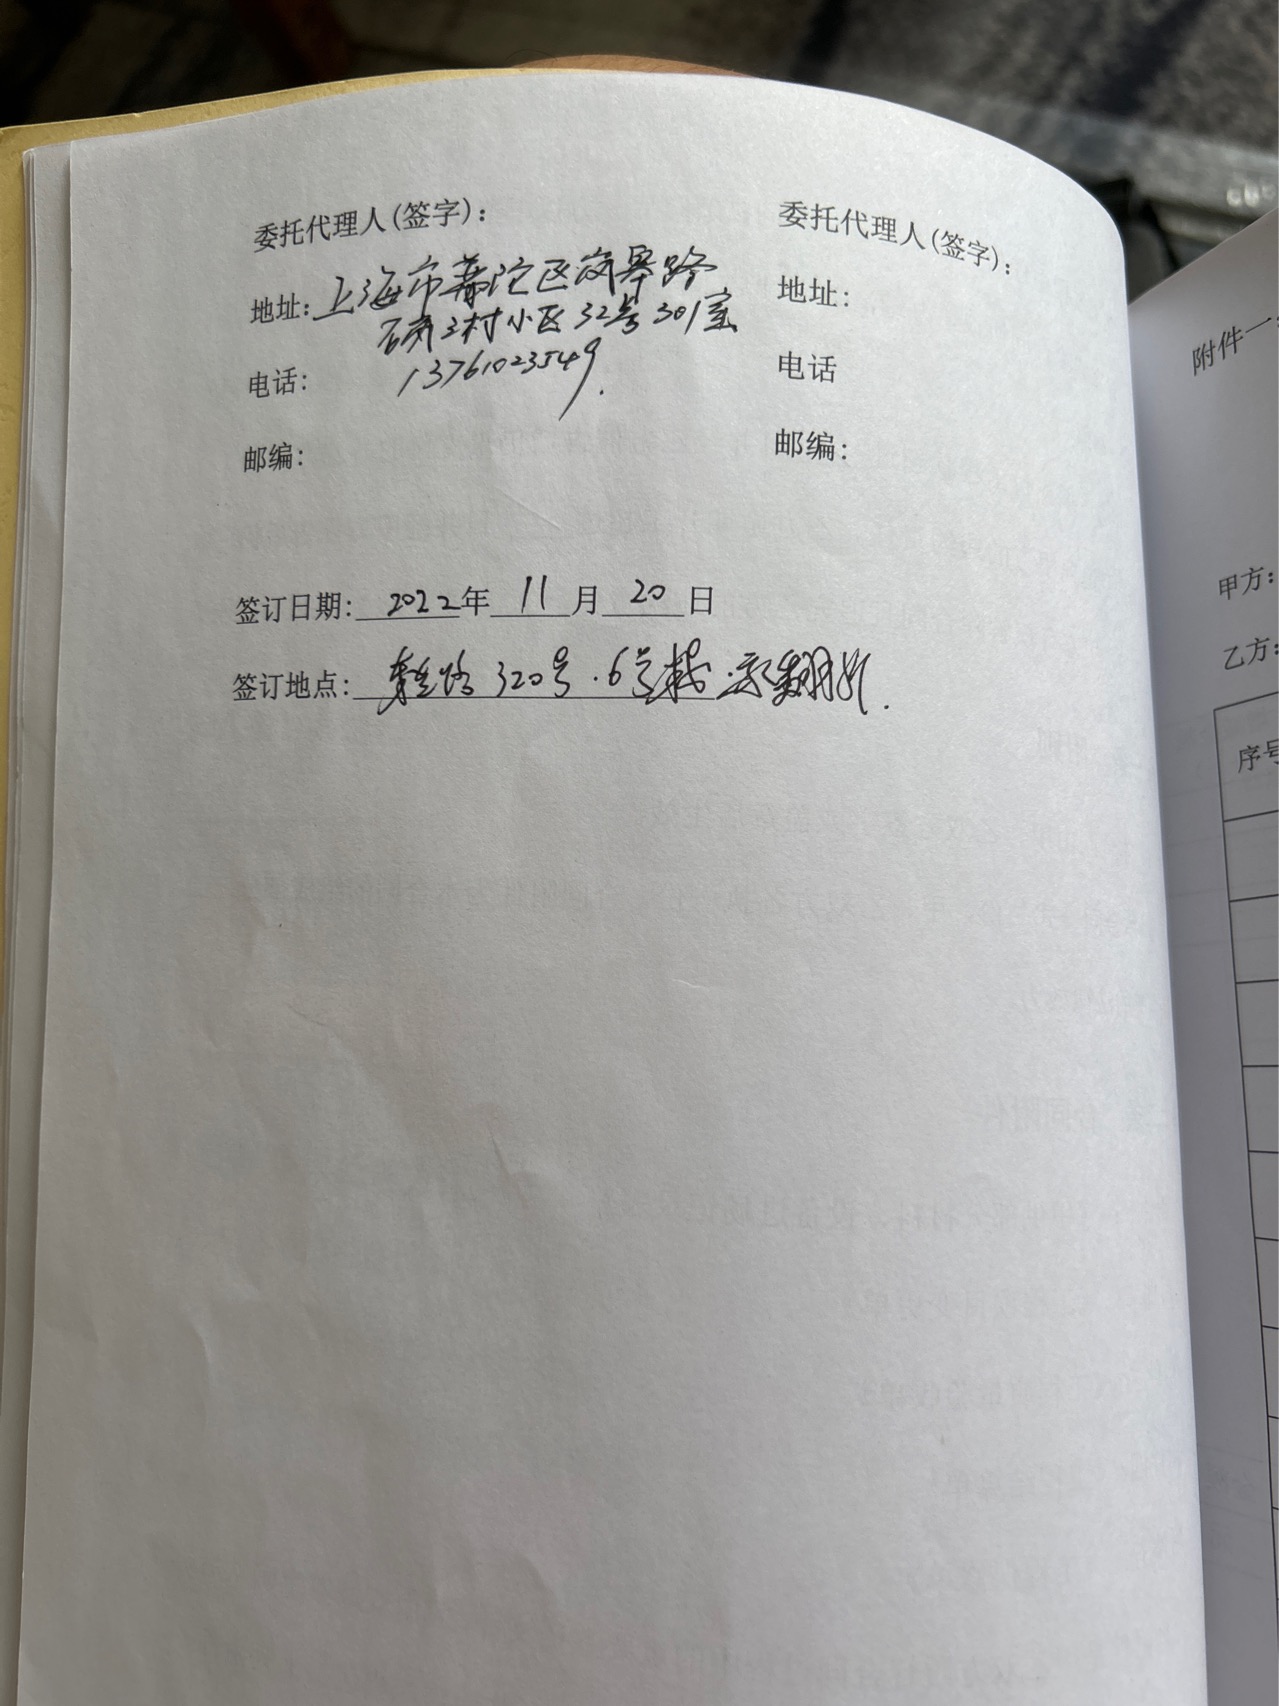 委托代理人(签字):
地址:上海市普陀区岚皋路
石岚三村小区32号301室
电话: 13761023549.
邮编:
委托代理人(签字):
地址:
电话
邮编:
签订日期: 2022年 11 月 20 日
签订地点: 路 320号·6号楼·
附件一:
甲方:
乙方:
序号